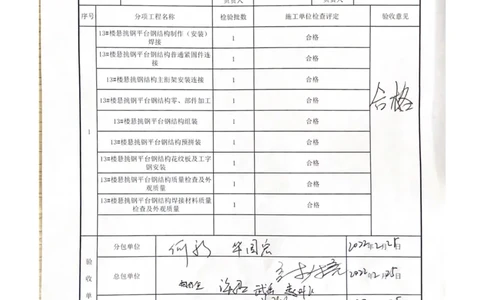 负责人 负责人
序号 分项工程名称 检验批数 施工单位检查评定 验收意见
13#楼悬挑钢平台钢结构制作（安装）
焊接 1 合格
13#楼悬挑钢平台钢结构普通紧固件连
接 1 合格
13#楼悬挑钢结构主桁架安装连接 1 合格
13#楼悬挑钢平台钢结构零、部件加工 1 合格
合格
13#楼悬挑钢平台钢结构组装 1 合格
1
13#楼悬挑钢平台钢结构预拼装 1 合格
13#楼悬挑钢平台钢结构花纹板及工字
钢安装 1 合格
13#楼悬挑钢平台钢结构质量检查及外
观质量 1 合格
13#楼悬挑钢平台钢结构焊接材料质量
检查及外观质量 1 合格
分包单位 2022年2月25日
验
收
单
总包单位 2022年2月25日